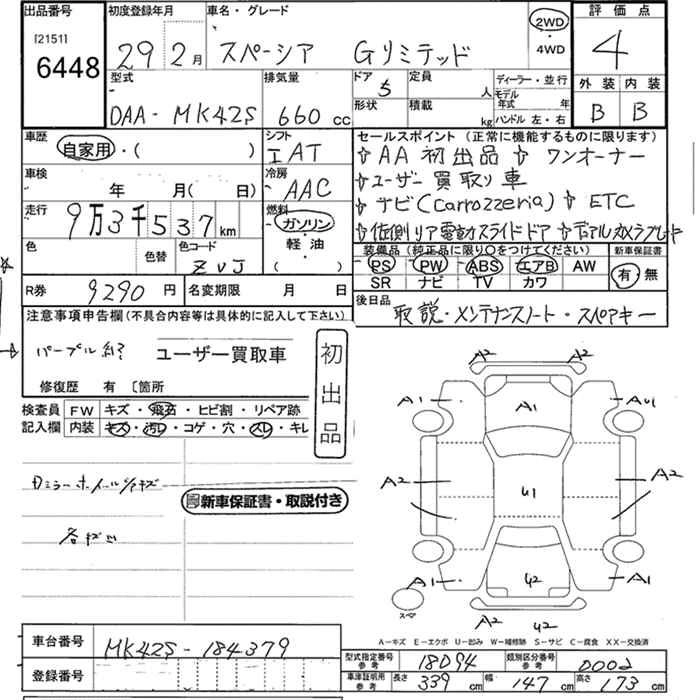 出品番号 初度登録年月 車名・グレード 評価点
[2151] 6448 29年 2月 スペーシア Gリミテッド 2WD・4WD 4
型式 排気量 ドア 定員 ディーラー・並行 外装 内装
DAA-MK42S 660cc 5 人 モデル年式 年 B B
形状 積載 kg ハンドル 左・右
車歴 シフト セールスポイント (正常に機能するものに限ります)
自家用・( ) IAT ☆AA初出品 ☆ワンオーナー
車検 年 月(日) 冷房 AAC ☆ユーザー買取り車
走行 9万3千537km 燃料 ガソリン・軽油・( ) ☆ナビ(carrozzeria) ☆ETC
☆左側リア電動スライドドア ☆デュアルカメラブレーキ
色 色替 色コード ZVJ 装備品(純正品に限り○をつけてください) 新車保証書
PS PW ABS エアB AW 有・無
SR ナビ TV カワ
R券 9290円 名変期限 月 日 後日品
取説・メンテナンスノート・スペアキー
注意事項申告欄(不具合内容等は具体的に記入して下さい)
パープル ユーザー買取車 初出品
修復歴 有 〔箇所
検査員記入欄 FW キズ・飛石・ヒビ割・リペア跡
内装 キズ・汚レ・コゲ・穴・スレ・キレ
ミラーホイールキズ
新車保証書・取説付き
各キズ凹
A2 A2
A1 A1 AU1
A2 U1 A2
A1 U2 A1
スペア A2 U2
A-キズ E-エクボ U-凹み W-補修跡 S-サビ C-腐食 XX-交換済
車台番号 MK42S-184379
登録番号
型式指定番号 参考 18094 類別区分番号 参考 0002
車庫証明用 参考 長さ 339cm 幅 147cm 高さ 173cm